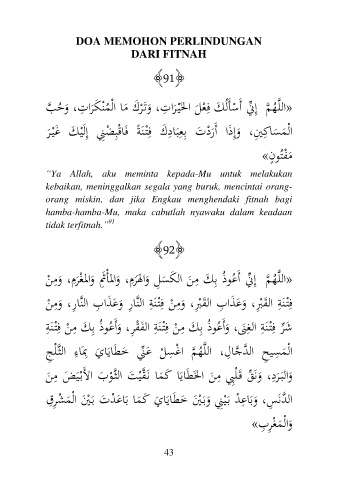 DOA MEMOHON PERLINDUNGAN
DARI FITNAH
﴾91﴿
«اللَّهُمَّ إِنِّي أَسْأَلُكَ فِعْلَ الْخَيْرَاتِ، وَتَرْكَ مَا الْمُنْكَرَاتِ، وَحُبَّ
الْمَسَاكِينِ، وَإِذَا أَرَدْتَ بِعِبَادِكَ فِتْنَةً فَاقْبِضْنِي إِلَيْكَ غَيْرَ
مَفْتُونٍ»
"Ya Allah, aku meminta kepada-Mu untuk melakukan
kebaikan, meninggalkan segala yang buruk, mencintai orang-
orang miskin, dan jika Engkau menghendaki fitnah bagi
hamba-hamba-Mu, maka cabutlah nyawaku dalam keadaan
tidak terfitnah."91
﴾92﴿
«اللَّهُمَّ إِنِّي أَعُوذُ بِكَ مِنَ الْكَسَلِ وَالْهَرَمِ، وَالْمَأْثَمِ وَالْمَغْرَمِ، وَمِنْ
فِتْنَةِ الْقَبْرِ، وَعَذَابِ الْقَبْرِ، وَمِنْ فِتْنَةِ النَّارِ وَعَذَابِ النَّارِ، وَمِنْ
شَرِّ فِتْنَةِ الْغِنَى، وَأَعُوذُ بِكَ مِنْ فِتْنَةِ الْفَقْرِ، وَأَعُوذُ بِكَ مِنْ فِتْنَةِ
الْمَسِيحِ الدَّجَّالِ، اللَّهُمَّ اغْسِلْ عَنِّي خَطَايَايَ بِمَاءِ الثَّلْجِ
وَالْبَرَدِ، وَنَقِّ قَلْبِي مِنَ الْخَطَايَا كَمَا نَقَّيْتَ الثَّوْبَ الأَبْيَضَ مِنَ
الدَّنَسِ، وَبَاعِدْ بَيْنِي وَبَيْنَ خَطَايَايَ كَمَا بَاعَدْتَ بَيْنَ الْمَشْرِقِ
وَالْمَغْرِبِ»
43